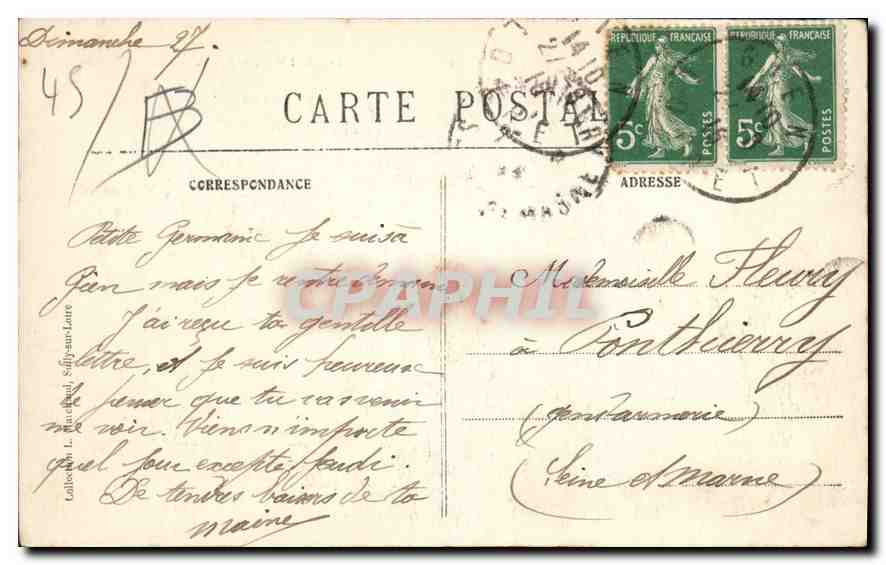 Dimanche 27.
45
B
CARTE POSTAL
CORRESPONDANCE
ADRESSE
REPUBLIQUE FRANÇAISE
5c
POSTES
REPUBLIQUE FRANÇAISE
5c
POSTES
Petite Germaine Je suis à
Gien mais je rentre demain
J'ai reçu ta gentille
lettre, et je suis heureuse
de penser que tu vas venir
me voir. Viens n'importe
quel jour excepté jeudi.
De tendres baisers de ta
maine
Mademoiselle Fleury
à Ponthierry
(gendarmerie)
(Seine et Marne)
Collection L. Marchand, Sully-sur-Loire
CPAPHIL